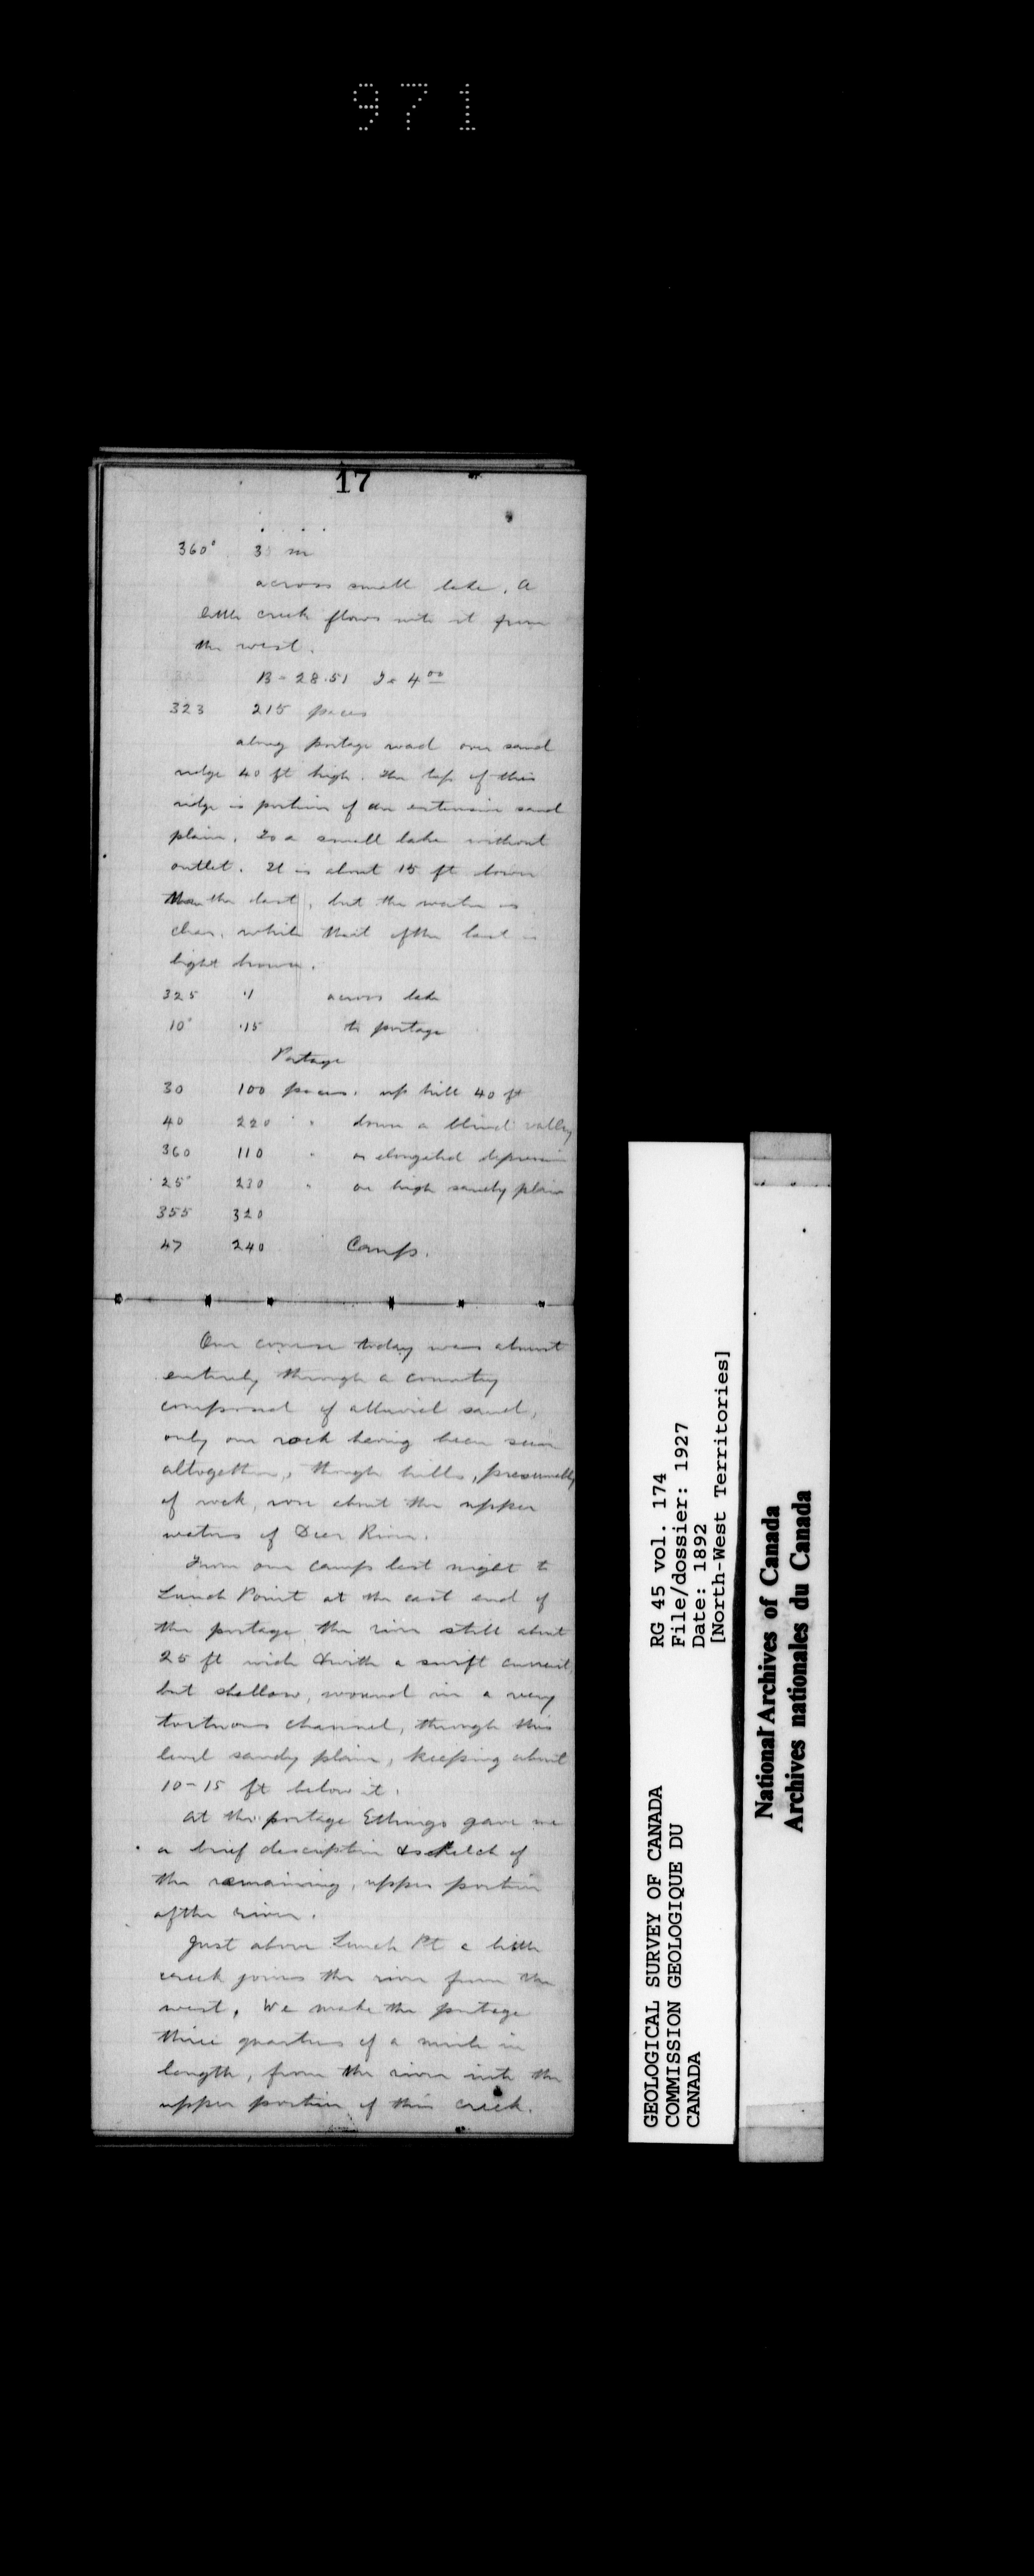 971
17
360° 3 m
across small lake. A
little creek flows into it from
the west.
B = 28.51 4 00
323 215 paces
along portage road over sand
ridge 40 ft high. The top of this
ridge is portion of an extensive sand
plain. To a small lake without
outlet. It is about 15 ft lower
than the last, but the water is
clear, while that of the last is
light brown.
325 .1 across lake
10° .15 to portage
Portage
30 100 paces. up hill 40 ft
40 220 " down a blind valley
360 110 " or elongated depression
25° 230 " on high sandy plain
355 320
47 240 Camp.
Our course today was almost
entirely through a country
composed of alluvial sand,
only one rock having been seen
altogether, though hills, presumably
of rock, rose about the upper
waters of Deer River.
From our camp last night to
Lunch Point at the east end of
the portage the river still about
25 ft wide & with a swift current,
but shallow, wound in a very
tortuous channel, through this
level sandy plain, keeping about
10-15 ft below it.
At the portage gave me
a brief description & sketch of
the remaining, upper portion
of the river.
Just above Lunch Pt a little
creek joins the river from the
west. We make the portage
three quarters of a mile in
length, from the river into the
upper portion of this creek.
GEOLOGICAL SURVEY OF CANADA
COMMISSION GEOLOGIQUE DU
CANADA
RG 45 vol. 174
File/dossier: 1927
Date: 1892
[North-West Territories]
National Archives of Canada
Archives nationales du Canada